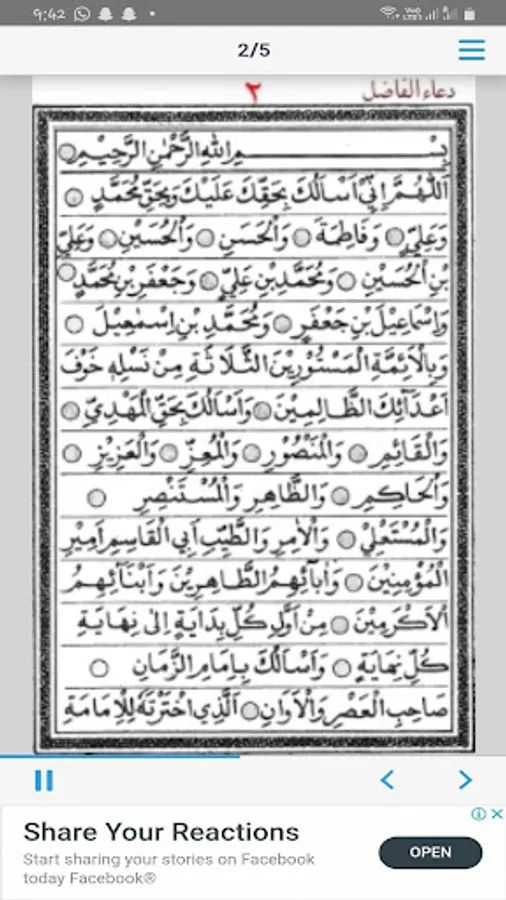 9:42
2/5
دعاء الفاضل
٢
بِسْمِ اللهِ الرَّحْمٰنِ الرَّحِيْمِ
اَللّٰهُمَّ اِنِّيْ اَسْاَلُكَ بِحَقِّكَ عَلَيْكَ وَبِحَقِّ مُحَمَّدٍ
وَعَلِيٍّ وَفَاطِمَةَ وَالْحَسَنِ وَالْحُسَيْنِ وَعَلِيِّ
بْنِ الْحُسَيْنِ وَمُحَمَّدِ بْنِ عَلِيٍّ وَجَعْفَرِ بْنِ مُحَمَّدٍ
وَاِسْمَاعِيْلَ بْنِ جَعْفَرٍ وَمُحَمَّدِ بْنِ اِسْمٰعِيْلَ
وَبِالْاَئِمَّةِ الْمَسْتُوْرِيْنَ الثَّلَاثَةِ مِنْ نَسْلِهٖ خَوْفَ
اَعْدَآئِكَ الظَّالِمِيْنَ وَاَسْاَلُكَ بِحَقِّ الْمَهْدِيِّ
وَالْقَائِمِ وَالْمَنْصُوْرِ وَالْمُعِزِّ وَالْعَزِيْزِ
وَالْحَاكِمِ وَالظَّاهِرِ وَالْمُسْتَنْصِرِ
وَالْمُسْتَعْلِيْ وَالْاٰمِرِ وَالطَّيِّبِ اَبِي الْقَاسِمِ اَمِيْرِ
الْمُؤْمِنِيْنَ وَاٰبَآئِهِمُ الطَّاهِرِيْنَ وَاَبْنَآئِهِمُ
الْاَكْرَمِيْنَ مِنْ اَوَّلِ كُلِّ بِدَايَةٍ اِلٰى نِهَايَةِ
كُلِّ نِهَايَةٍ وَاَسْاَلُكَ بِاِمَامِ الزَّمَانِ
صَاحِبِ الْعَصْرِ وَالْاَوَانِ الَّذِي اخْتَرْتَهٗ لِلْاِمَامَةِ
Share Your Reactions
Start sharing your stories on Facebook
today Facebook®
OPEN